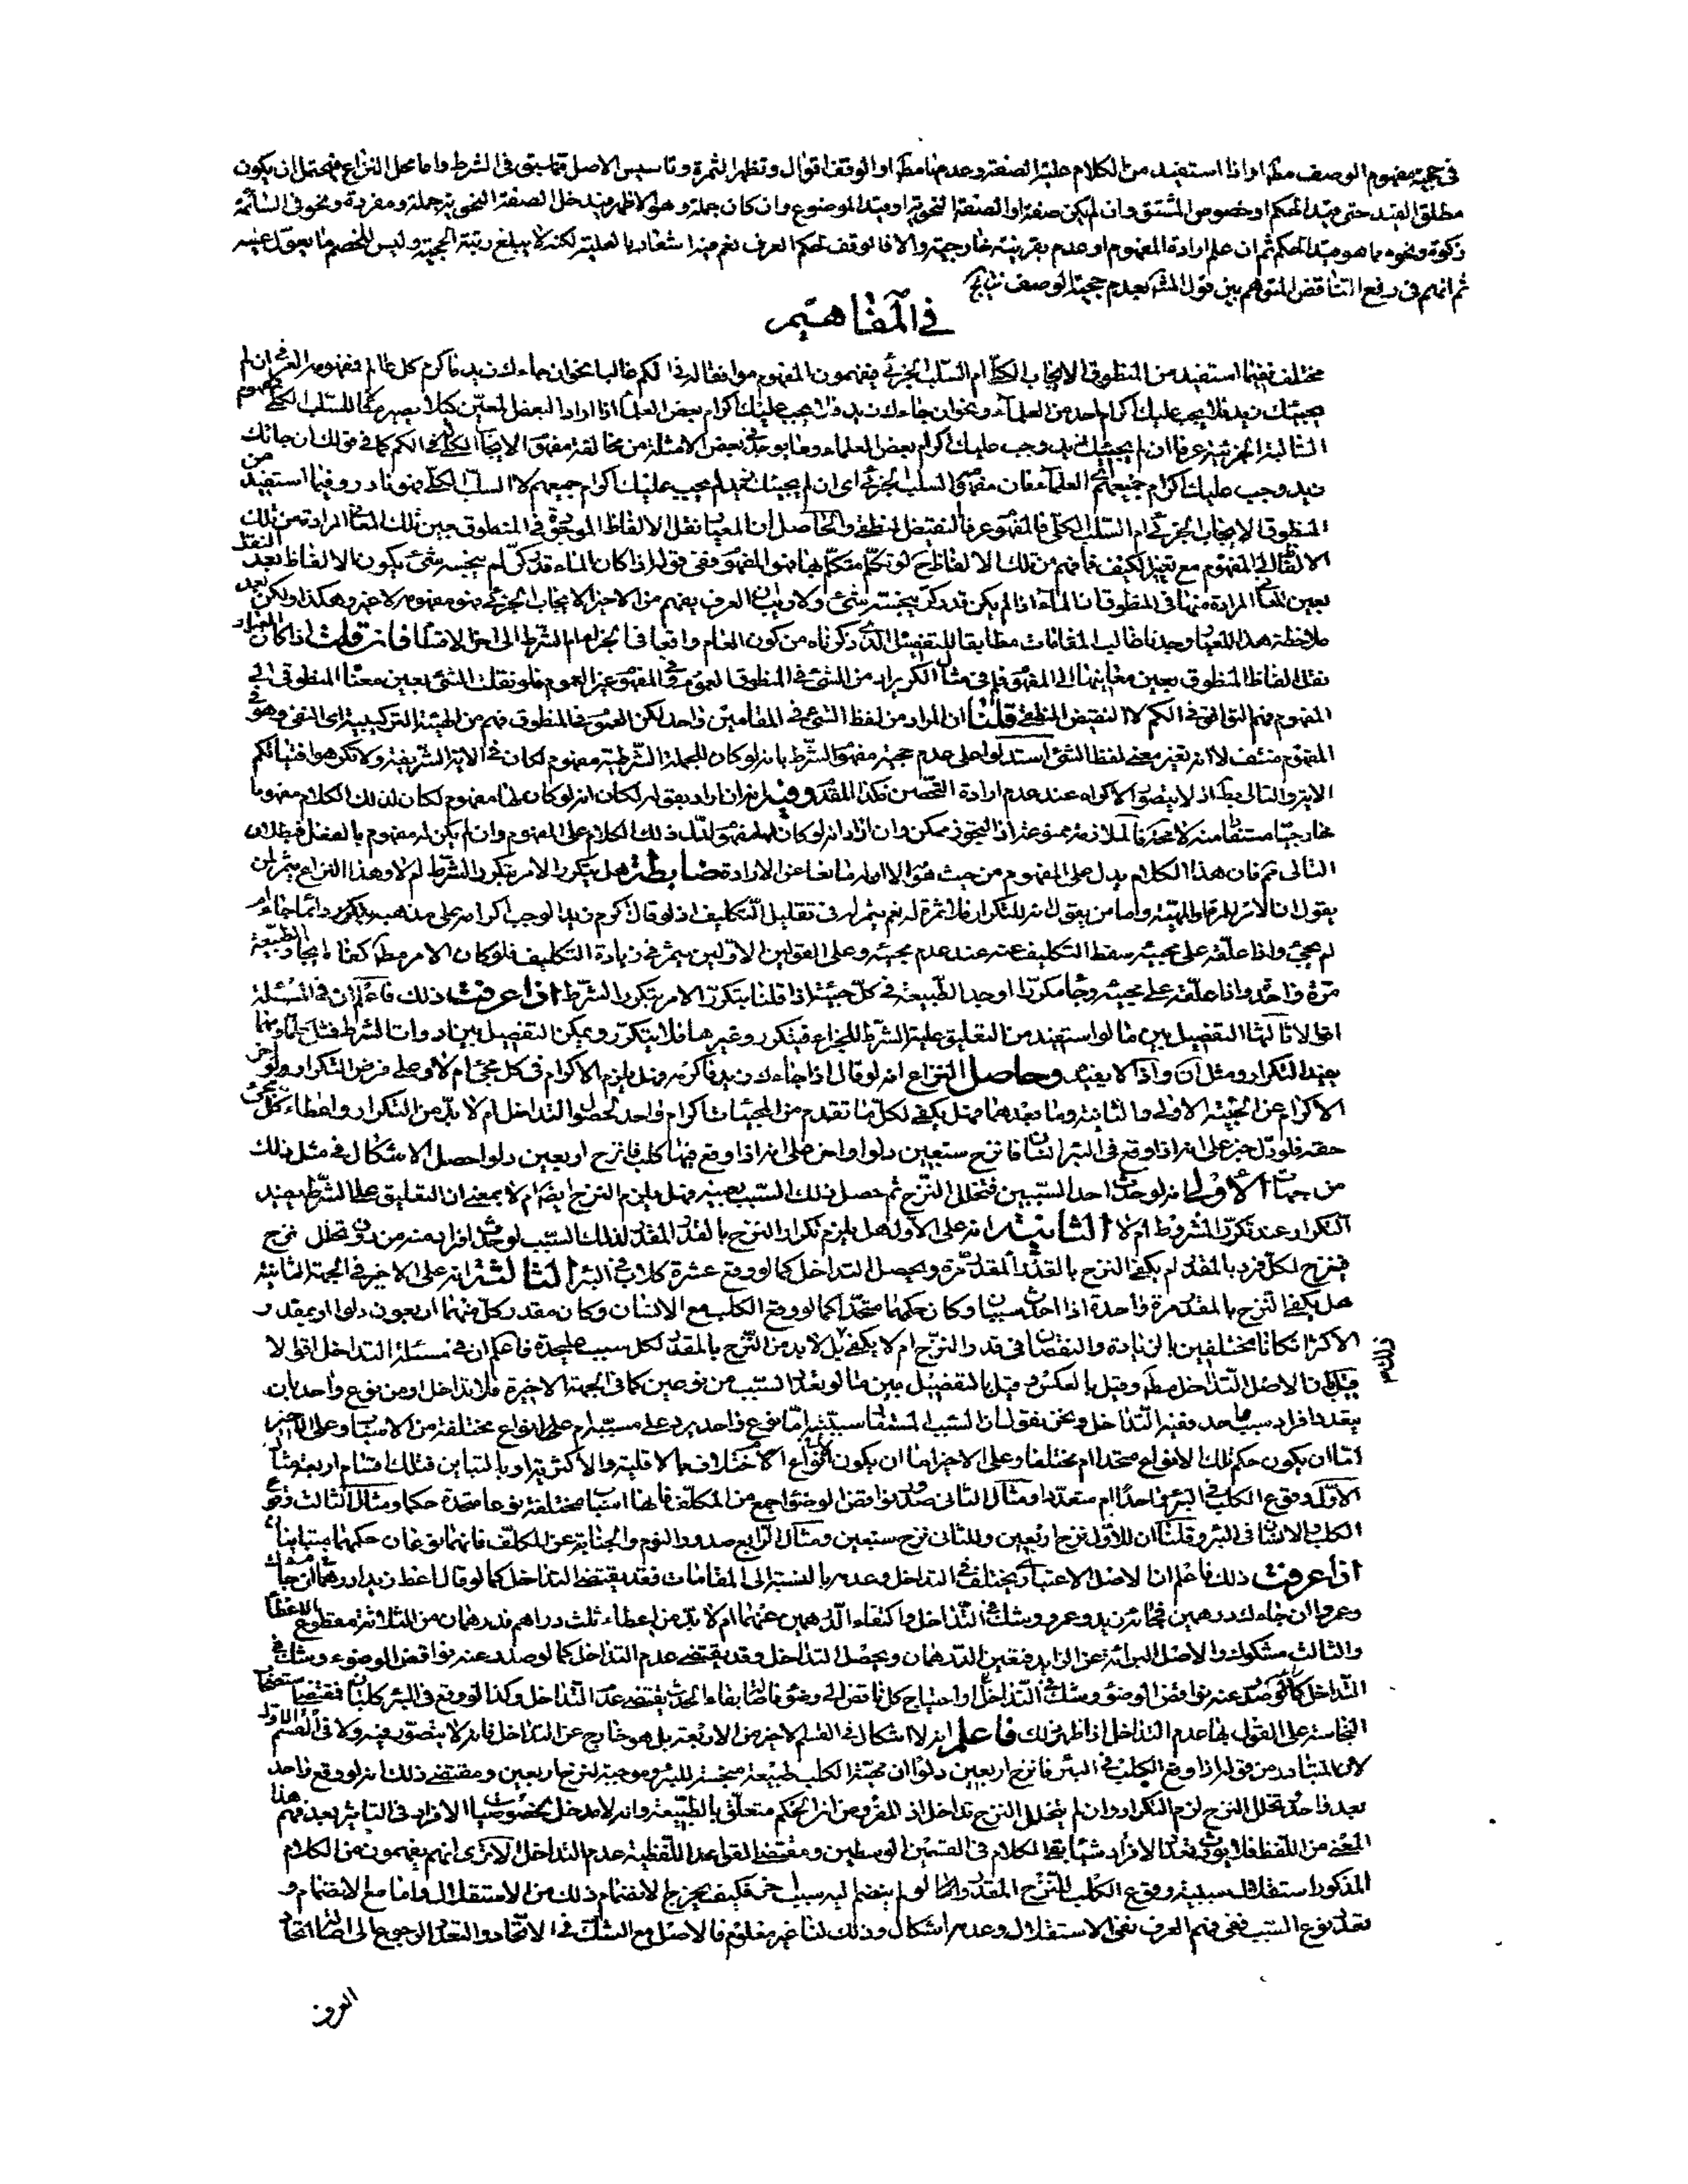 في حجية مفهوم الوصف مطلقا او اذا استفيد من الكلام علية الصفة وعدمها مطلقا او الوقف اقوال وتظهر الثمرة وتاسيس الاصل كما سبق في الشرط واما محل النزاع فيحتمل ان يكون
مطلق القيد حتى قيد الحكم او خصوص المشتق وان لم يكن صفة او الصفة النحوية او قيد الموضوع وان كان جملة وهو الاظهر فيدخل الصفة النحوية جملة ومفردة ونحو في السائمة
زكوة ونحوه مما هو قيد الحكم ثم ان علم ارادة المفهوم او عدمه بقرينة خارجية والا فالوقف لحكم العرف نعم فيه اشعار بالعلية لكنه لا يبلغ رتبة الحجية وليس للخصم ما يعول عليه
ثم انهم في رفع التناقض المتوهم بين قول المشهور بعدم حجية الوصف
في المفاهيم
مختلف ففيما استفيد من المنطوق الايجاب الكلي ام السلب الجزئي يفهمون المفهوم موافقا له في الكم غالبا نحو ان جاءك زيد فاكرم كل عالم فمفهومه العرفي ان لم
يجئك زيد فلا يجب عليك اكرام احد من العلماء ونحو ان جاءك زيد فلا يجب عليك اكرام بعض العلماء اذا اراد البعض المعين كيلا يصير كالسلب الكلي مفهوم
السالبة الجزئية عرفا ان لم يجئك زيد وجب عليك اكرام بعض العلماء وما يوجد في بعض الامثلة من مخالفة مفهوم الايجاب الكلي في الكم كما في قولك ان جائك
زيد وجب عليك اكرام جميع العلماء فان مفهومه السلب الجزئي اي ان لم يجئك زيد لم يجب عليك اكرام جميعهم لا السلب الكلي فهو نادر وفيما استفيد من
المنطوق الايجاب الجزئي ام السلب الكلي فالمفهوم عرفا النقيض المنطقي والحاصل ان المعيار نقل الالفاظ الموجودة في المنطوق بعين تلك المعاني المرادة من تلك
الالفاظ الى المفهوم مع تغيير الكيف فما فهم من تلك الالفاظ ح لو تكلم متكلم بها فهو المفهوم ففي قوله اذا كان الماء قدر كر لم ينجسه شئ يكون الالفاظ بعد النقل
بعين المعاني المرادة منها في المنطوق ان الماء اذا لم يكن قدر كر ينجسه شئ ولا ريب ان العرف يفهم من الاخير الايجاب الجزئي فهو مفهومه لا غير وهكذا ولكن بعد
ملاحظة هذا المعيار وجدنا غالب المقامات مطابقا للتفصيل الذي ذكرناه من كون العام واقعا في الجزاء ام الشرط الى اخر الاقسام فان قلت اذا كان المعيار
نقل الفاظ المنطوق بعين معانيها الى المفهوم ففي مثال الكر يراد من الشئ في المنطوق العموم وفي المفهوم غير العموم فلو نقلت الشئ بعين معناه المنطوقي الى
المفهوم فهم التوافق في الكم لا النقيض المنطقي قلنا ان المراد من لفظ الشئ في المقامين واحد لكن العموم في المنطوق فهم من الهيئة التركيبية اي النفي وهو في
المفهوم منتف لا انه تغير معنى لفظ الشئ استدلوا على عدم حجية مفهوم الشرط بانه لو كان للجملة الشرطية مفهوم لكان في الاية الشريفة ولا تكرهوا فتياتكم
الاية والتالي بط اذ لا يتصور الاكراه عند عدم ارادة التحصن فكذا المقدم وفيه انه ان اراد بقوله لكان انه لو كان لها مفهوم لكان لذلك الكلام مفهوما
خارجيا مستفادا منه لا محالة فالملازمة ممنوعة اذ التجوز ممكن وان اراد انه لو كان له مفهوم لدل ذلك الكلام على المفهوم وان لم يكن له مفهوم بالفعل فبطلان
التالي ثم فان هذا الكلام يدل على المفهوم من حيث هو الا ان له مانعا عن الارادة ضابطة هل يتكرر الامر بتكرر الشرط ام لا وهذا النزاع يثمر لمن
يقول ان الامر للمرة او المهية واما من يقول انه للتكرار فلا ثمرة له نعم يثمر له في تقليل التكليف اذ لو قال اكرم زيدا لوجب اكرامه على مذهبه بالتكرر دائما جاء ام
لم يجئ واذا علقه على مجيئه سقط التكليف عنه عند عدم مجيئه وعلى القولين الاولين يثمر في زيادة التكليف فلو كان الامر مطلقا كفانا ايجاد الطبيعة
مرة واحدة واذا علقه على مجيئه وجاء مكررا اوجد الطبيعة في كل جيئة اذا قلنا بتكرر الامر بتكرر الشرط اذا عرفت ذلك فاعلم ان في المسئلة
اقوالا ثالثها التفصيل بين ما لو استفيد من التعليق علية الشرط للجزاء فيتكرر وغيرها فلا يتكرر ويمكن التفصيل بين ادوات الشرط فمثل كلما ومهما
يفيد التكرار ومثل ان واذا لا يفيد وحاصل النزاع انه لو قال اذا جاءك زيد فاكرمه فهل يلزم الاكرام في كل مجئ ام لا وعلى فرض التكرار ولو اخر
الاكرام عن الجيئة الاولى والثانية وما بعدهما فهل يكفي لكل ما تقدم من المجيئات اكرام واحد لحصول التداخل ام لا بد من التكرار واعطاء كل مجئ
حقه فلو دل خبر على انه اذا وقع في البئر انسان فانزح سبعين دلوا واخر على انه اذا وقع فيها كلب فانزح اربعين دلوا حصل الاشكال في مثل ذلك
من جهات الاولى انه لو حدث احد السببين فتخلل النزح ثم حصل ذلك السبب بعينه فهل يلزم النزح ايضا ام لا بمعنى ان التعليق على الشرط يفيد
التكرار عند تكرر الشروط ام لا الثانية انه على الاول هل يلزم تكرار النزح بالقدر المقدر لذلك السبب لو حدث افراد منه من دون تخلل نزح
فينزح لكل فرد بالمقدر ام يكفي النزح بالقدر المقدر مرة ويحصل التداخل كما لو وقع عشرة كلاب في البئر الثالثة انه على الاخير في الجهة الثانية
هل يكفي النزح بالمقدر مرة واحدة اذا حدث سببان وكان حكمهما متحدا كما لو وقع الكلب مع الانسان وكان مقدر كل منهما اربعون دلوا او بمقدر
الاكثر ان كانا مختلفين بالزيادة والنقصان في قدر النزح ام لا يكفي بل لابد من النزح بالمقدر لكل سبب عليحدة فاعلم ان في مسئلة التداخل اقوالا
قيل بان الاصل التداخل مطلقا وقيل بالعكس وقيل بالتفصيل بين ما لو تعدد السبب من نوعين كما في الجهة الاخيرة فلا تداخل او من نوع واحد بان
يتعدد افراد سبب واحد ففيه التداخل ونحن نقول ان السبب المستفاد سببيته اما نوع واحد يرد على مسببه ام على انواع مختلفة من الاسباب وعلى الاخير
اما ان يكون حكم تلك الانواع متحدا ام مختلفا وعلى الاخير اما ان يكون انواع الاختلاف بالاقلية والاكثرية او بالتباين فتلك اقسام اربعة مثال
الاول وقوع الكلب في البئر واحدا ام متعددا ومثال الثاني صدور نواقض الوضوء اجمع من المكلف فانها اسباب مختلفة نوعا متحدة حكما ومثال الثالث وقوع
الكلب والانسان في البئر وقلنا ان للاول نزح اربعين وللثاني نزح سبعين ومثال الرابع صدور النوم والجنابة عن المكلف فانهما نوعان حكمهما متباينا
اذا عرفت ذلك فاعلم ان الاصل الاعتباري يختلف في التداخل وعدمه بالنسبة الى المقامات فقد يقتضي التداخل كما لو قال اعط زيدا درهما ان جائك
وعمروا ان جاءك درهمين فجائه زيد وعمرو وشك في التداخل واكتفاء الدرهمين عنهما ام لا بد من اعطاء ثلث دراهم فدرهمان من الثلاثة مقطوع الاعطاء
والثالث مشكوك والاصل البرائة عن الزايد فتعين الدرهمان ويحصل التداخل وقد يقتضي عدم التداخل كما لو صدر عنه نواقض الوضوء وشك في
التداخل كما لو صدر عنه نواقض الوضوء وشك في التداخل او احتياج كل ناقض الى وضوء فاصالة بقاء الحدث يقتضي عدم التداخل وكذا لو وقع في البئر كلبان فمقتضى استصحاب
النجاسة على القول بها عدم التداخل اذا ظهر ذلك فاعلم انه لا اشكال في القسم الاخير من الاربعة بل هو خارج عن التداخل فانه لا يتصور فيه ولا في القسم الاول
لان المتبادر من قوله اذا وقع الكلب في البئر فانزح اربعين دلوا ان مهية الكلب طبيعة منجسة للبئر وموجبة لنزح اربعين ومقتضى ذلك انه لو وقع واحد
بعد واحد وتخلل النزح لزم التكرار وان لم يتخلل النزح تداخل اذ المفروض ان الحكم متعلق بالطبيعة وانه لا مدخل لخصوصيات الافراد في التاثير بعد فهم هذا
المعنى من اللفظ فلا يورث تعدد الافراد شيئا بقي الكلام في القسمين الوسطين ومقتضى القواعد اللفظية عدم التداخل الا ترى انهم يفهمون من الكلام
المذكور استقلال سببية وقوع الكلب لنزح المقدر والحال لو لم ينضم اليه سبب اخر فكيف يخرج الانضمام ذلك من الاستقلال واما مع الانضمام و
تعدد نوع السبب ففي فهم العرف نفي الاستقلال وعدمه اشكال وذلك لنا غير معلوم فالاصل مع الشك في الاتحاد والتعدد الرجوع الى اصالة اتحاد
العرف